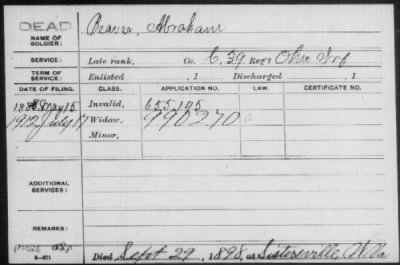 DEAD
NAME OF SOLDIER:
Beaver, Abraham
SERVICE:
Late rank, Co. C. 39 Reg't Ohio Inf
TERM OF SERVICE:
Enlisted , 1 Discharged , 1
DATE OF FILING. CLASS. APPLICATION NO. LAW. CERTIFICATE NO.
188 May 15 Invalid, 655,105
1912 July 17 Widow, 990270
Minor,
ADDITIONAL SERVICES:
REMARKS:
3—671
Died Sept 29, 1898, at Sistersville, W.Va